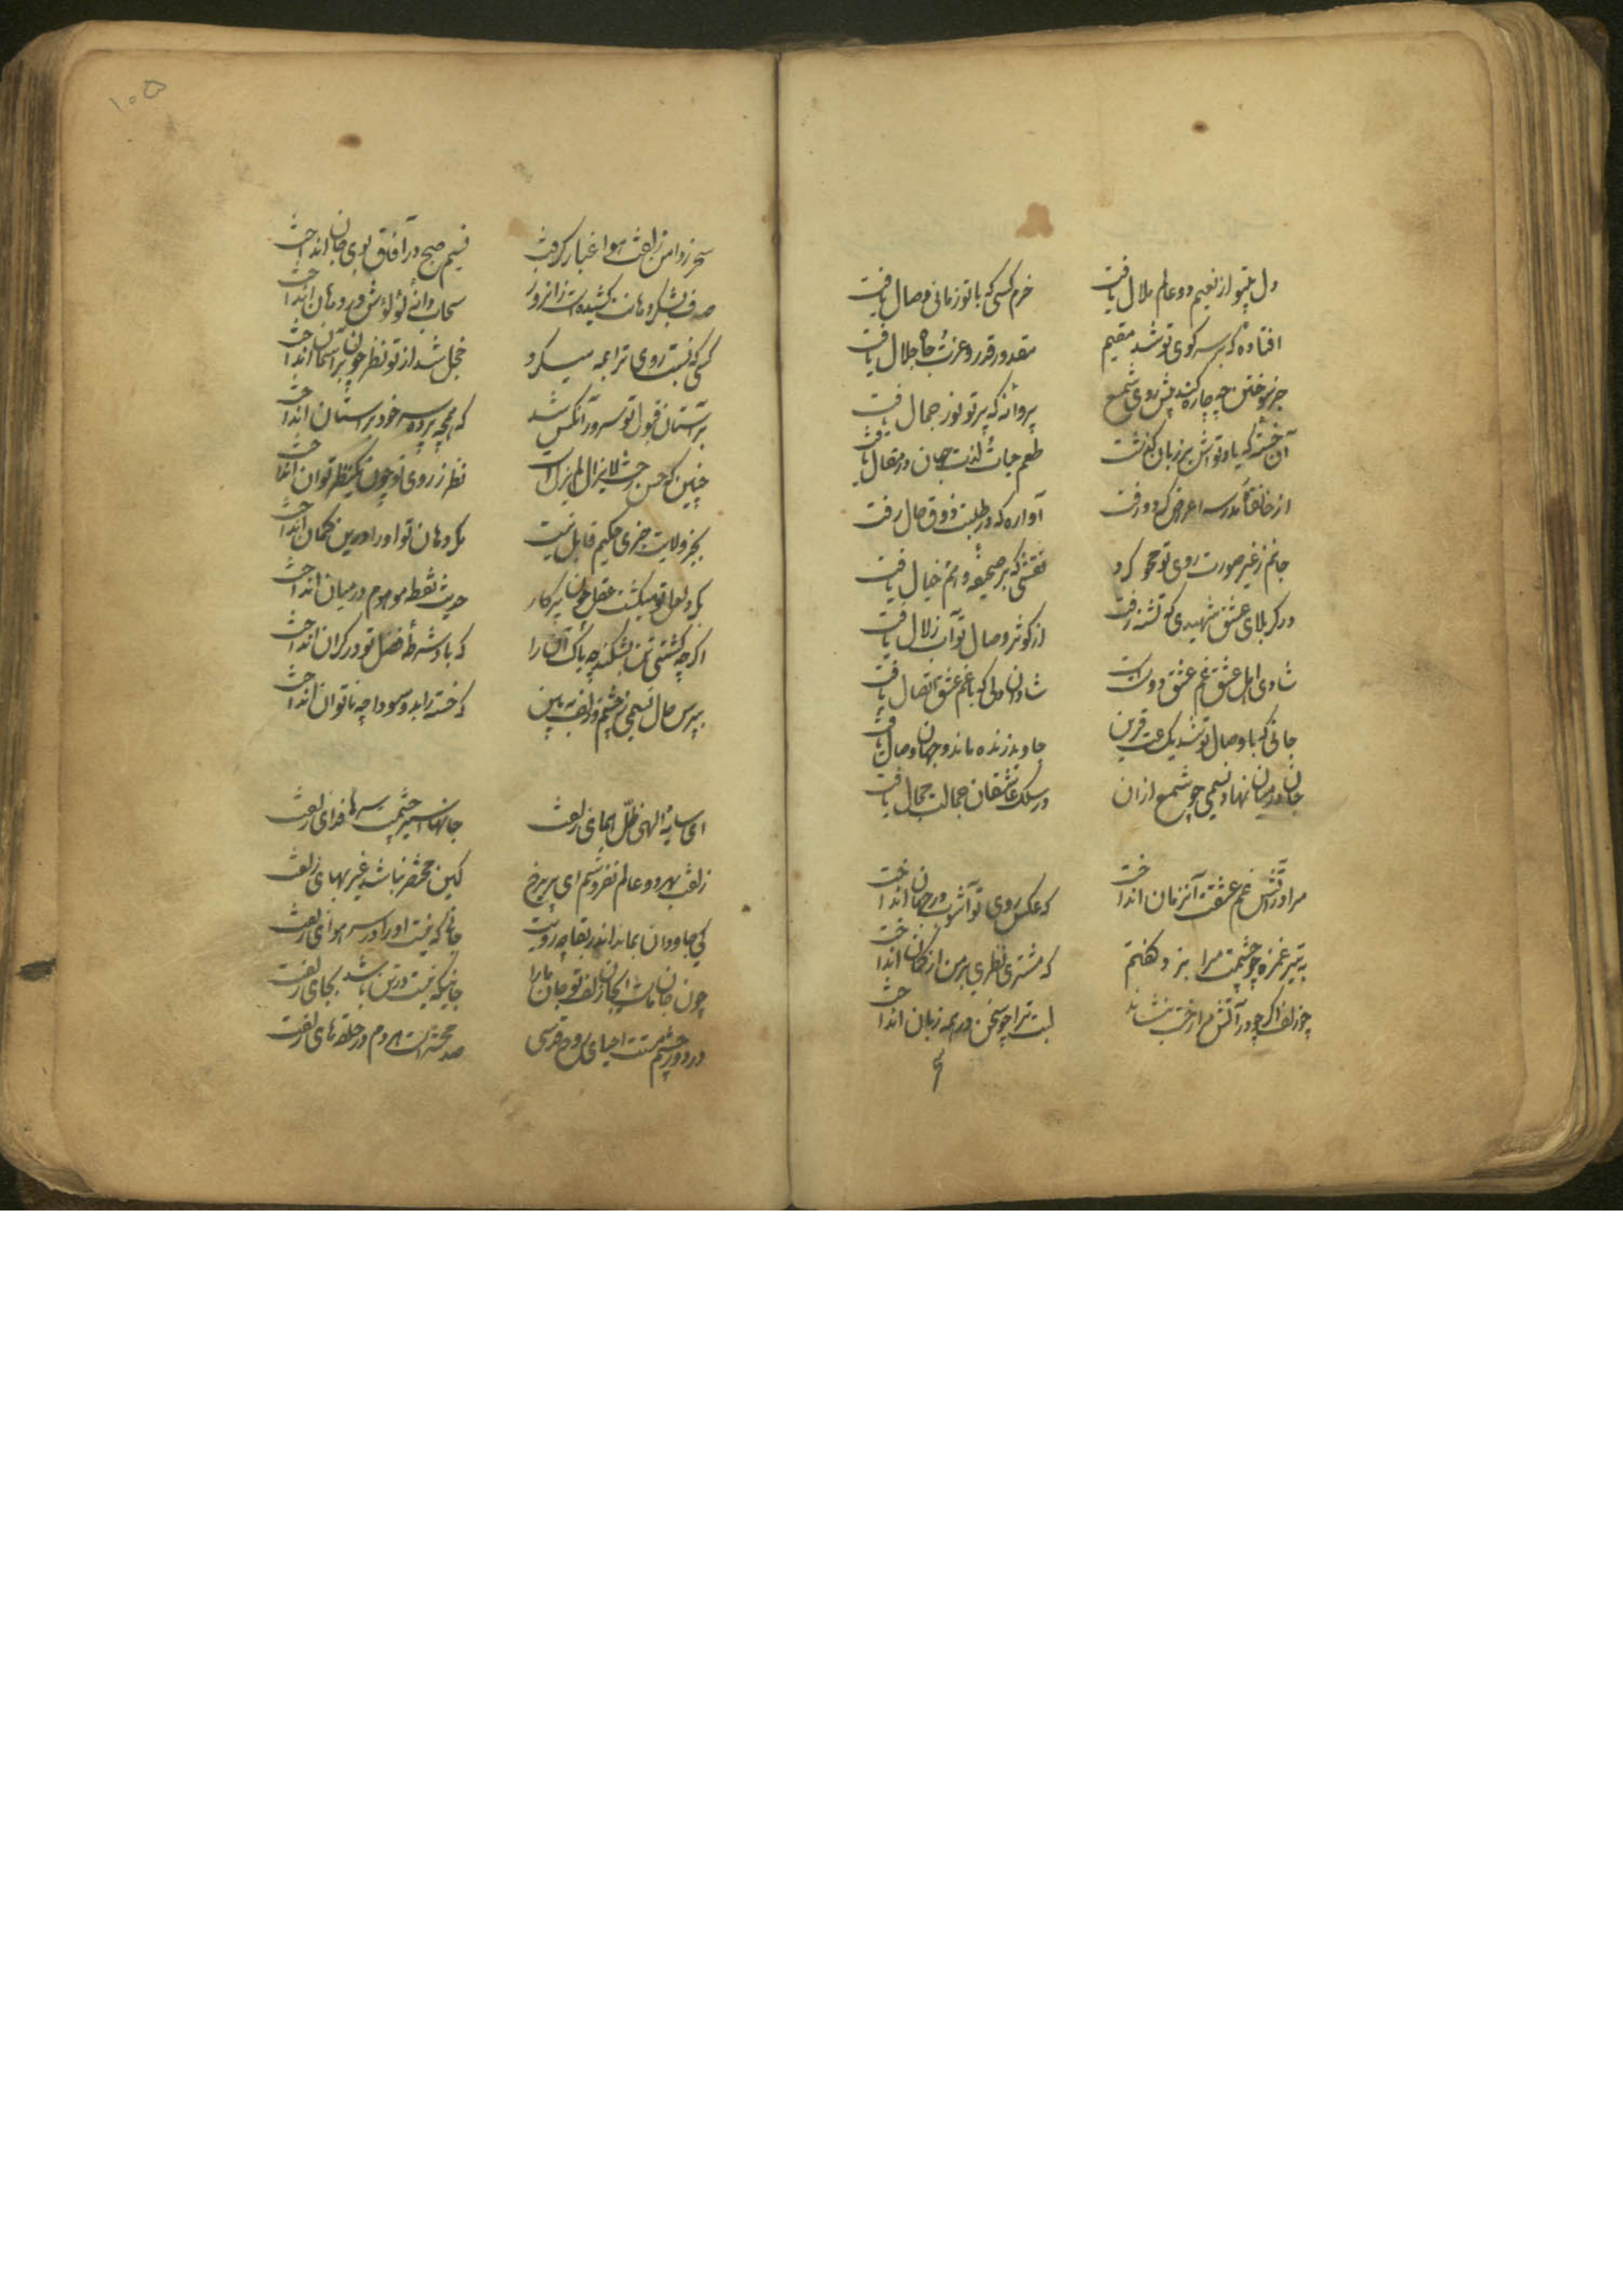 دل بیتو از نعیم دو عالم ملال یافت
خرم کسی که با تو زمانی وصال یافت
افتاده که بر سر کوی تو شد مقیم
مقدور قدر و عزت جاه جلال یافت
جز سوختن چه چاره کند پیش روی شمع
پروانه که پرتو نور جمال یافت
آن خسته که یاد تواش بر زبان گذشت
طعم حیات لذت جان در مقال یافت
از خانقاه و مدرسه اعراض کرد و رفت
آواره که در طلبت ذوق حال یافت
جانم ز غیر صورت روی تو محو کرد
نقشی که بر صحیفه وهم خیال یافت
در کربلای عشق شهیدی که تشنه رفت
از کوثر وصال تو آب زلال یافت
شادی اهل عشق غم عشق دوست
شادان دلی که با غم عشق اتصال یافت
جانی که با وصال تو شد یک قرین
جاوید زنده ماند و جهان وصال یافت
جان در میان نهاد نسیمی چو شمع از ان
در سلک عاشقان جمالت جمال یافت
مرا در آتش غم عشقت آنزمان انداخت
که عکس روی تو آشوب در جهان انداخت
به تیر غمزه چو چشمت مرا بزد گفتم
که مشتری نظری بر من از کمان انداخت
چو زلف اگر چه در آتش مرا رخت بنشاند
لبت مرا چو سخن در همه زبان انداخت
سحر ز دامن زلفت هوا غبار گرفت
نسیم صبح در آفاق بوی جان انداخت
صدف بشکر دهانت کشیده است زانرو
سحاب دانه لؤلؤش در دهان انداخت
کسی که نسبت روی ترا بمه میکرد
خجل شد از تو نظر چون بر آسمان انداخت
بر آستان قبول تو سرور آنکس شد
که همچو پرده سر خود بر آستان انداخت
چنین که حسن رخت لایزال لم یزل است
نظر ز روی تو چون یک نظر توان انداخت
بجز ولایت جزوی حکیم قایل نیست
مگر دهان تو او را درین گمان انداخت
بگرد لعل تو میگشت عقل چون پرکار
حدیث نقطه موهوم در میان انداخت
اگر چه کشتی تن بشکند چه باک آن را
که باد شرطه فضل تو در کران انداخت
بپرس حال نسیمی ز چشم و زلف به بین
که خسته را بدو سودا چه ناتوان انداخت
ای سایهٔ الهی ظلّ همای زلفت
جانها اسیر چشمت سرها فدای زلفت
زلفت بهر دو عالم نفروشم ای پریرخ
کین مختصر نباشد غیر بهای زلفت
کی جاودان بماند اندر بقا چه رویت
جانی که نیست او را در سر هوای زلفت
چون جان ماست ای جان زلف تو جان ما را
جانیکه نیست در تن باشد بجای زلفت
در دور چشم مستت احیای روح قدسی
صد محشر است هر دم در حلقه های زلفت
۱۰۵